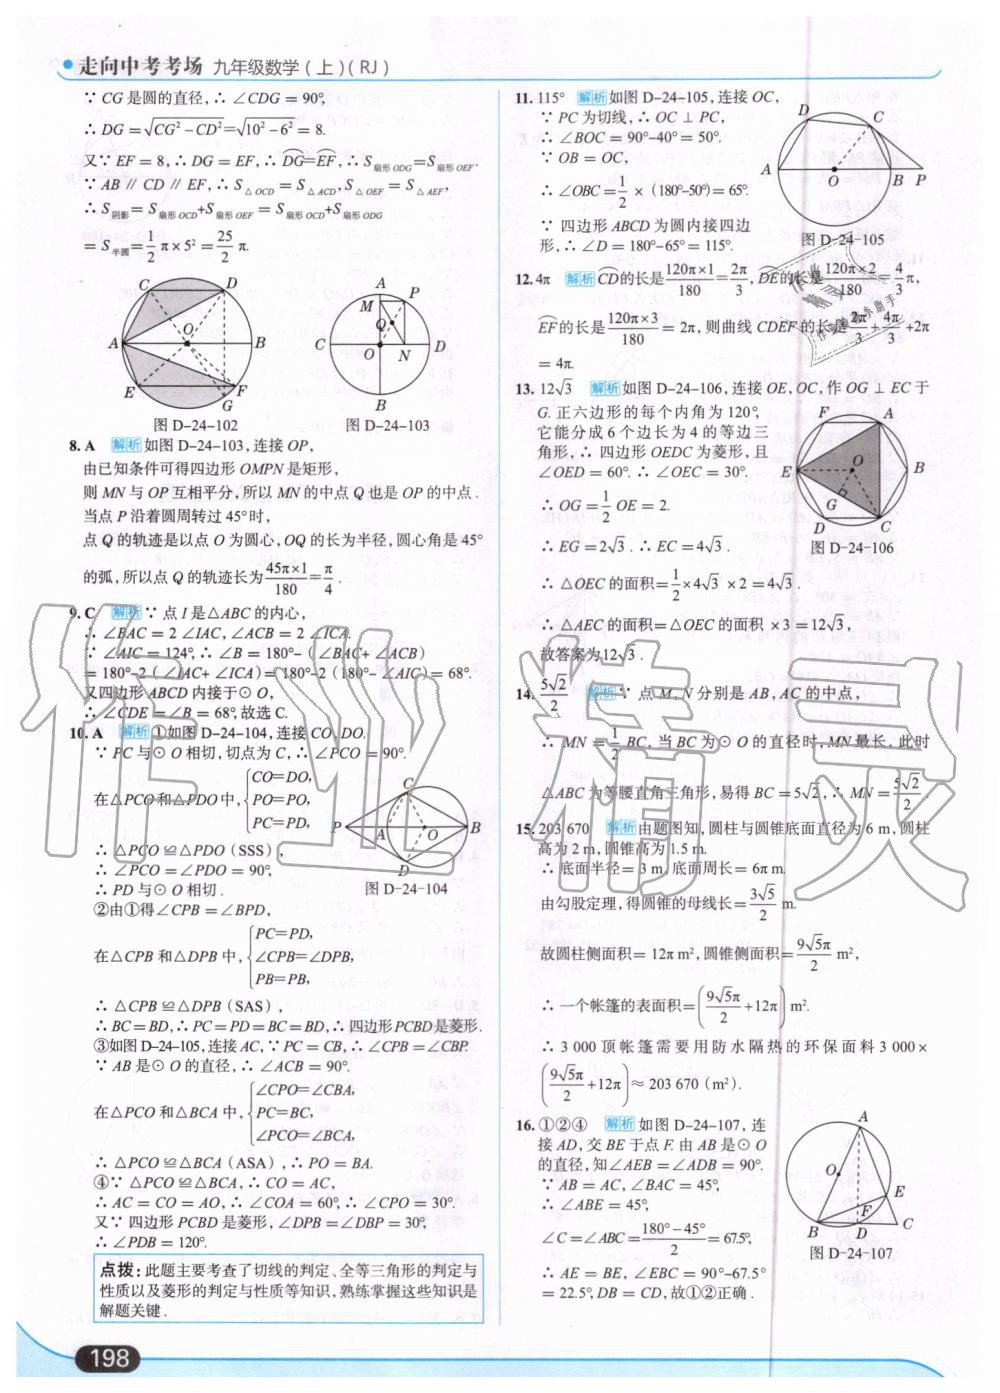 走向中考考场 九年级数学(上)(RJ)
∵ CG是圆的直径,∴ ∠CDG = 90°,
∴ DG = √(CG²－CD²) = √(10²－6²) = 8.
又∵ EF = 8,∴ DG = EF,∴ DG⌒=EF⌒,∴ S扇形ODG=S扇形OEF.
∵ AB // CD // EF,∴ S△OCD = S△ACD,S△OEF = S△AEF,
∴ S阴影=S扇形OCD+S扇形OEF = S扇形OCD+S扇形ODG
= S半圆=1/2 π×5² = 25/2 π.
C D A B O E F G
A M P Q C O N D B
图 D-24-102 图 D-24-103
8. A 解析 如图 D-24-103,连接 OP,
由已知条件可得四边形 OMPN 是矩形,
则 MN 与 OP 互相平分,所以 MN 的中点 Q 也是 OP 的中点.
当点 P 沿着圆周转过 45°时,
点 Q 的轨迹是以点 O 为圆心,OQ 的长为半径,圆心角是 45°
的弧,所以点 Q 的轨迹长为 45π×1/180 = π/4.
9. C 解析 ∵ 点 I 是△ABC 的内心,
∴ ∠BAC = 2 ∠IAC,∠ACB = 2 ∠ICA.
∵ ∠AIC = 124°,∴ ∠B = 180°-(∠BAC+ ∠ACB)
= 180°-2(∠IAC+ ∠ICA)= 180°-2(180°- ∠AIC)= 68°.
又四边形 ABCD 内接于⊙O,
∴ ∠CDE = ∠B = 68°,故选 C.
10. A 解析 ①如图 D-24-104,连接 CO,DO.
∵ PC 与⊙O 相切,切点为 C,∴ ∠PCO = 90°.
在△PCO 和△PDO 中,{CO=DO, PO=PO, PC=PD,
P A O B C D
∴ △PCO ≌△PDO(SSS),
∴ ∠PCO = ∠PDO = 90°,
∴ PD 与⊙O 相切.
图 D-24-104
②由①得∠CPB = ∠BPD,
在△CPB 和△DPB 中,{PC=PD, ∠CPB=∠DPB, PB=PB,
∴ △CPB ≌△DPB(SAS),
∴ BC = BD,∴ PC = PD = BC = BD,∴ 四边形 PCBD 是菱形.
③如图 D-24-105,连接 AC,∵ PC = CB,∴ ∠CPB = ∠CBP.
∵ AB 是⊙O 的直径,∴ ∠ACB = 90°.
在△PCO 和△BCA 中,{∠CPO=∠CBA, PC=BC, ∠PCO=∠BCA,
∴ △PCO ≌△BCA(ASA),∴ PO = BA.
④∵ △PCO ≌△BCA,∴ CO = AC,
∴ AC = CO = AO,∴ ∠COA = 60°,∴ ∠CPO = 30°.
又∵ 四边形 PCBD 是菱形,∠DPB = ∠DBP = 30°,
∴ ∠PDB = 120°.
点拨:此题主要考查了切线的判定、全等三角形的判定与
性质以及菱形的判定与性质等知识,熟练掌握这些知识是
解题关键.
198
11. 115° 解析 如图 D-24-105,连接 OC,
∵ PC 为切线,∴ OC ⊥ PC,
∴ ∠BOC = 90°-40° = 50°.
∵ OB = OC,
∴ ∠OBC = 1/2 × (180°-50°)= 65°.
∵ 四边形 ABCD 为圆内接四边
形,∴ ∠D = 180°-65° = 115°.
D C A O B P
图 D-24-105
12. 4π 解析 CD⌒的长是 120π×1/180 = 2π/3,DE⌒的长是 120π×2/180 = 4/3 π,
EF⌒的长是 120π×3/180 = 2π,则曲线 CDEF 的长是 2π/3 + 4π/3 +2π
= 4π.
13. 12√3 解析 如图 D-24-106,连接 OE,OC,作 OG ⊥ EC 于
G. 正六边形的每个内角为 120°,
它能分成 6 个边长为 4 的等边三
角形,∴ 四边形 OEDC 为菱形,且
∠OED = 60°. ∴ ∠OEC = 30°.
∴ OG = 1/2 OE = 2.
∴ EG = 2√3. ∴ EC = 4√3.
F A E O B G D C
图 D-24-106
∴ △OEC 的面积 = 1/2 ×4√3 ×2 = 4√3.
∴ △AEC 的面积 = △OEC 的面积 ×3 = 12√3,
故答案为 12√3.
14. 5√2/2 解析 ∵ 点 M,N 分别是 AB,AC 的中点,
∴ MN = 1/2 BC,当 BC 为⊙O 的直径时,MN 最长,此时
△ABC 为等腰直角三角形,易得 BC = 5√2,∴ MN = 5√2/2.
15. 203 670 解析 由题图知,圆柱与圆锥底面直径为 6 m,圆柱
高为 2 m,圆锥高为 1.5 m.
∴ 底面半径 = 3 m,底面周长 = 6π m.
由勾股定理,得圆锥的母线长 = 3√5/2 m.
故圆柱侧面积 = 12π m²,圆锥侧面积 = 9√5π/2 m²,
∴ 一个帐篷的表面积 = (9√5π/2 +12π) m².
∴ 3 000 顶帐篷需要用防水隔热的环保面料 3 000 ×
(9√5π/2 +12π) ≈ 203 670 (m²).
16. ①②④ 解析 如图 D-24-107,连
接 AD,交 BE 于点 F. 由 AB 是⊙O
的直径,知∠AEB = ∠ADB = 90°.
∵ AB = AC,∠BAC = 45°,
∴ ∠ABE = 45°,
∠C = ∠ABC = 180°－45°/2 = 67.5°,
A O E F B D C
图 D-24-107
∴ AE = BE,∠EBC = 90°-67.5°
= 22.5°,DB = CD,故①②正确.
作业精灵